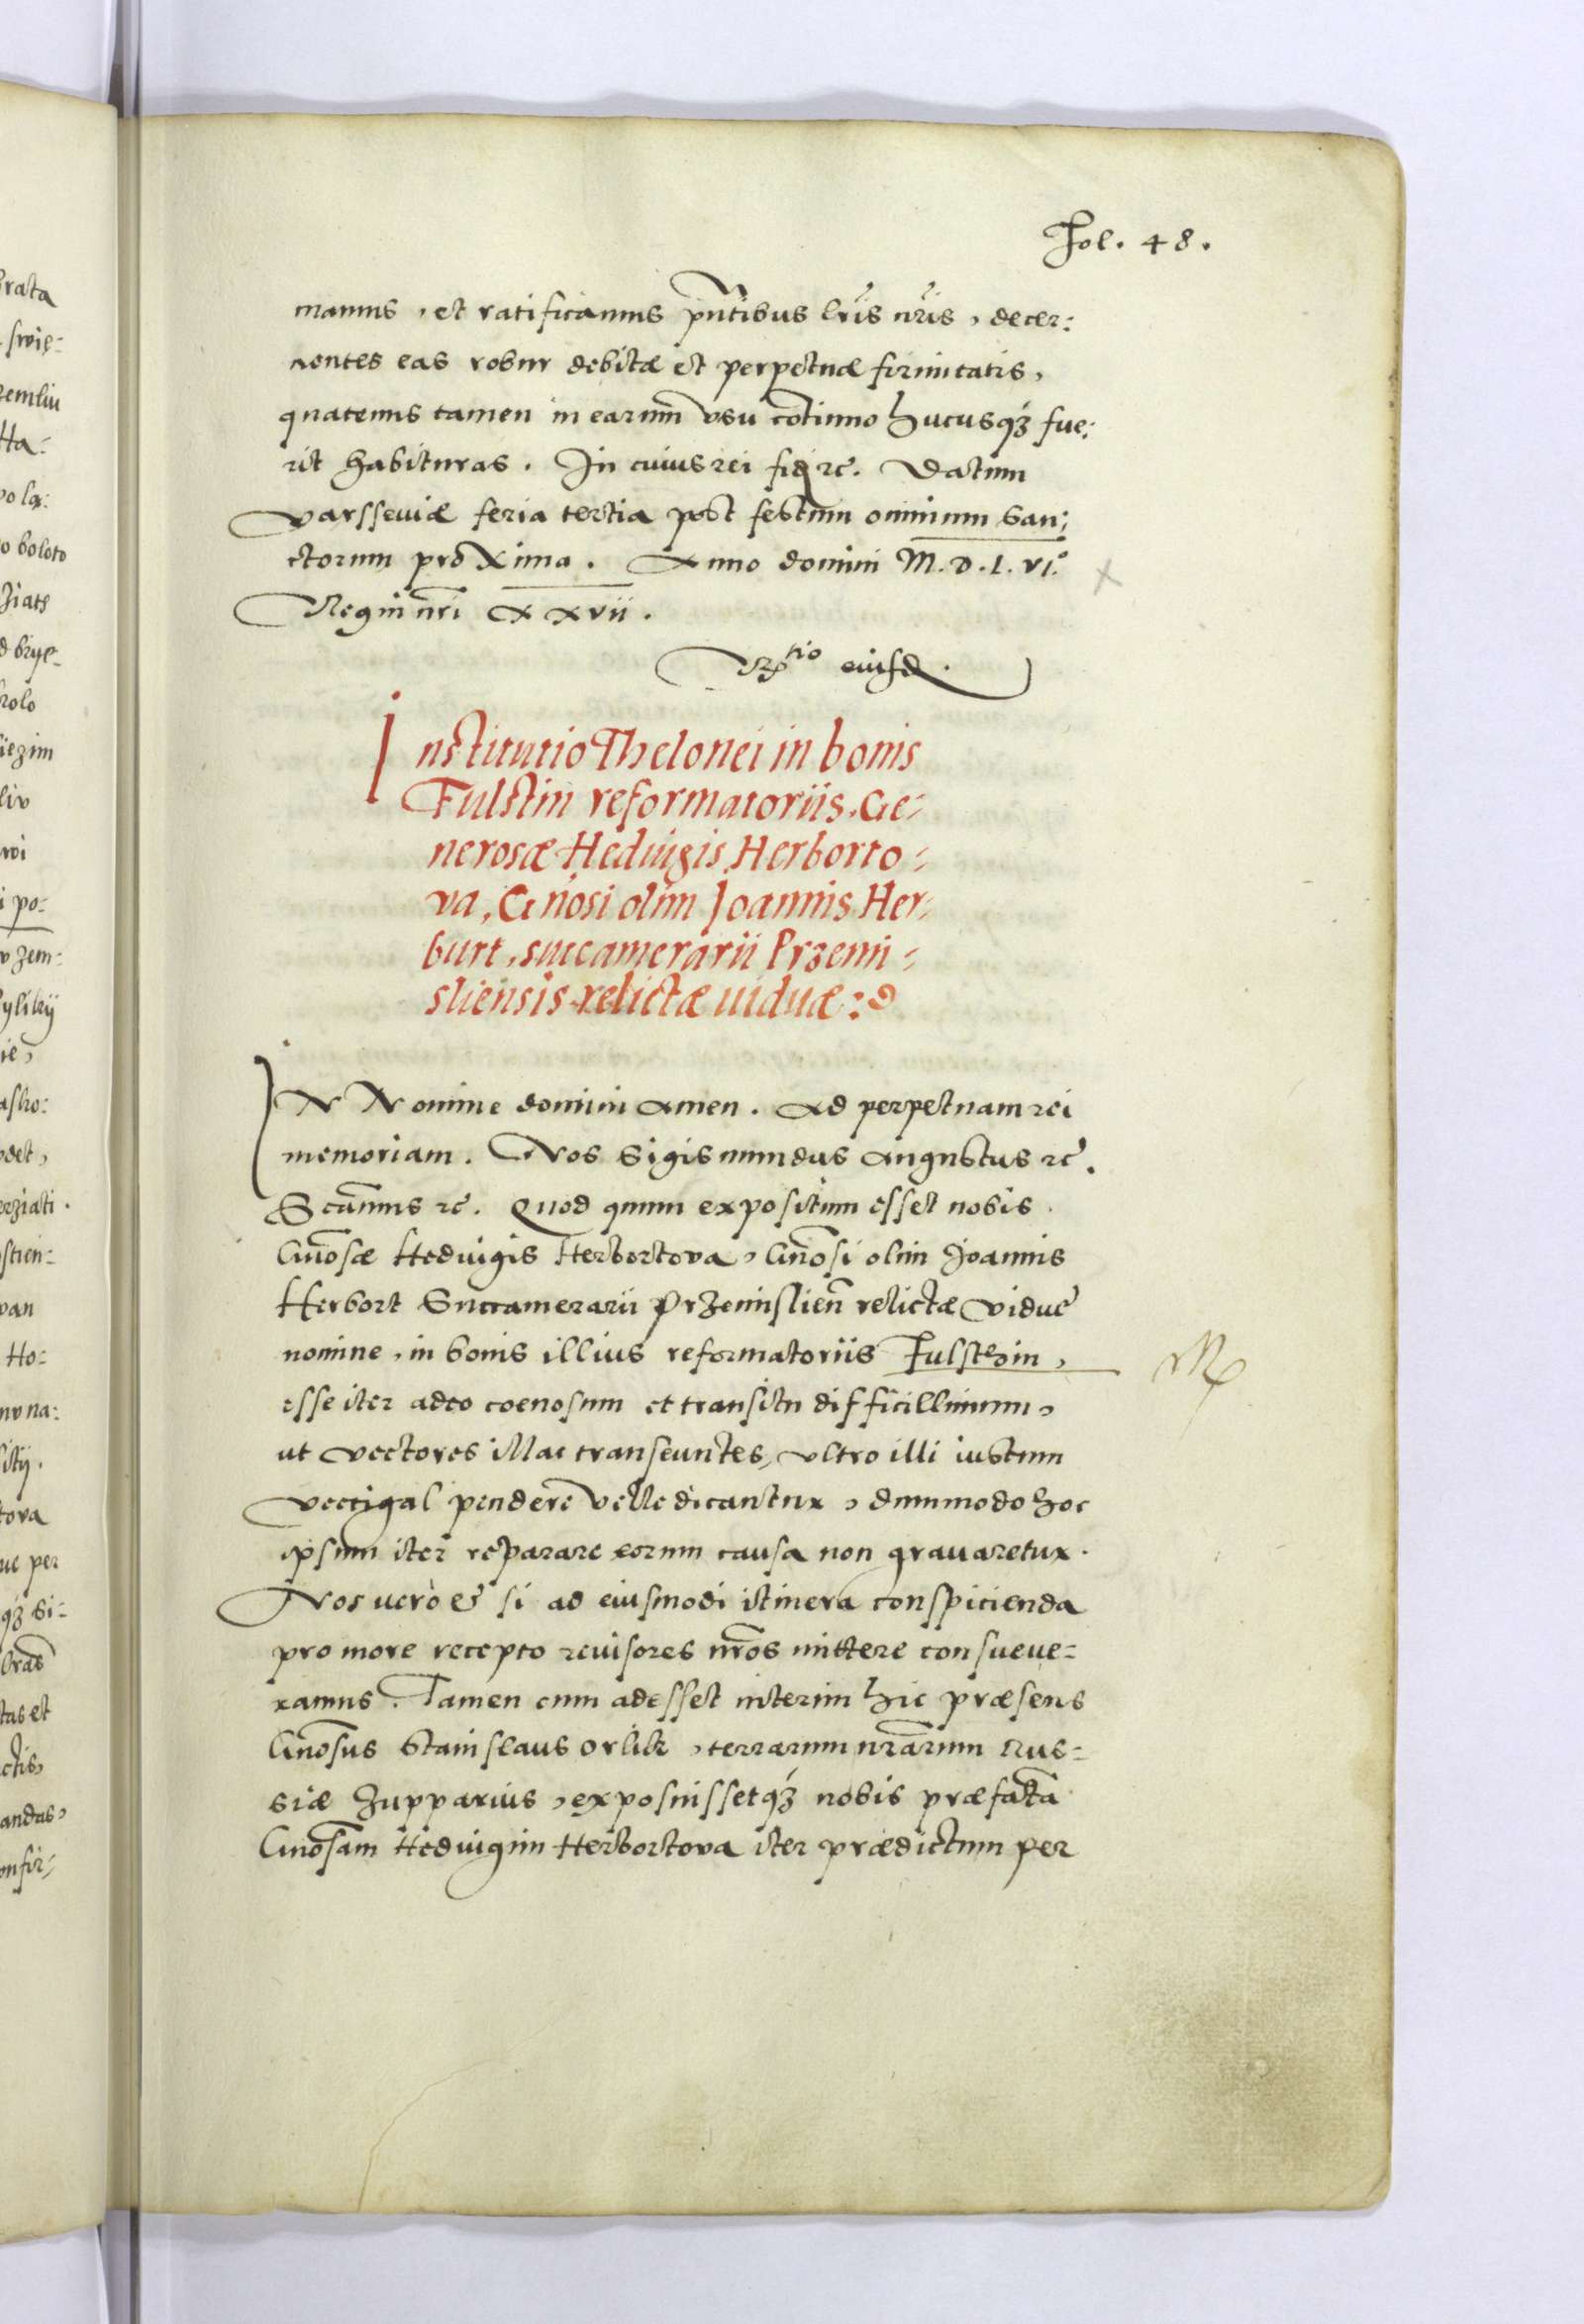 Fol. 48.
mamus, et ratificamus pñtibus lris nris, decer:
nentes eas robur debitæ et perpetuæ firmitatis,
quatenus tamen in earum̃ vsu cõtinuo hucusqꝫ fue:
rit habituras. In cuius rei fid ꝛc. Datum
Varsseuiæ feria tertia post festum omnium San:
ctorum proxima. Anno domini M.D.L.VI.
Regni nri XXVII.
Rtio eiusd.
Institutio Thelonei in bonis
Fulstin reformatoriis, Ge:
nerosæ Hedwigis Herborto:
va, Gnosi olim Joannis Her:
burt, succamerarii Przemi:
sliensis relictæ uiduæ:
IN Nomine domini Amen. Ad perpetuam rei
memoriam. Nos Sigismundus Augustus ꝛc.
Scãmus ꝛc. Quod quum expositum esset nobis
Gñosæ Heduigis Herbortova, Gñosi olim Joannis
Herbort Succamerarii Przemislieñ relictæ viduę
nomine, in bonis illius reformatoriis Fulsthin,
esse iter adeo coenosum et transitu difficillimum,
ut vectores illac transeuntes, vltro illi iustum
vectigal pendere velle dicantur, dummodo hoc
ipsum iter reparare eorum causa non grauaretur.
Nos uerò et si ad eiusmodi itinera conspicienda
pro more recepto reuisores nr̃os mittere consueue:
ramus. Tamen cum adesset interim hic præsens
Gñosus Stanislaus Orlik, terrarum nrãrum Rus:
siæ Zupparius, exposuissetqꝫ nobis præfatã
Gñosam Heduigim Herbortova iter prædictum per